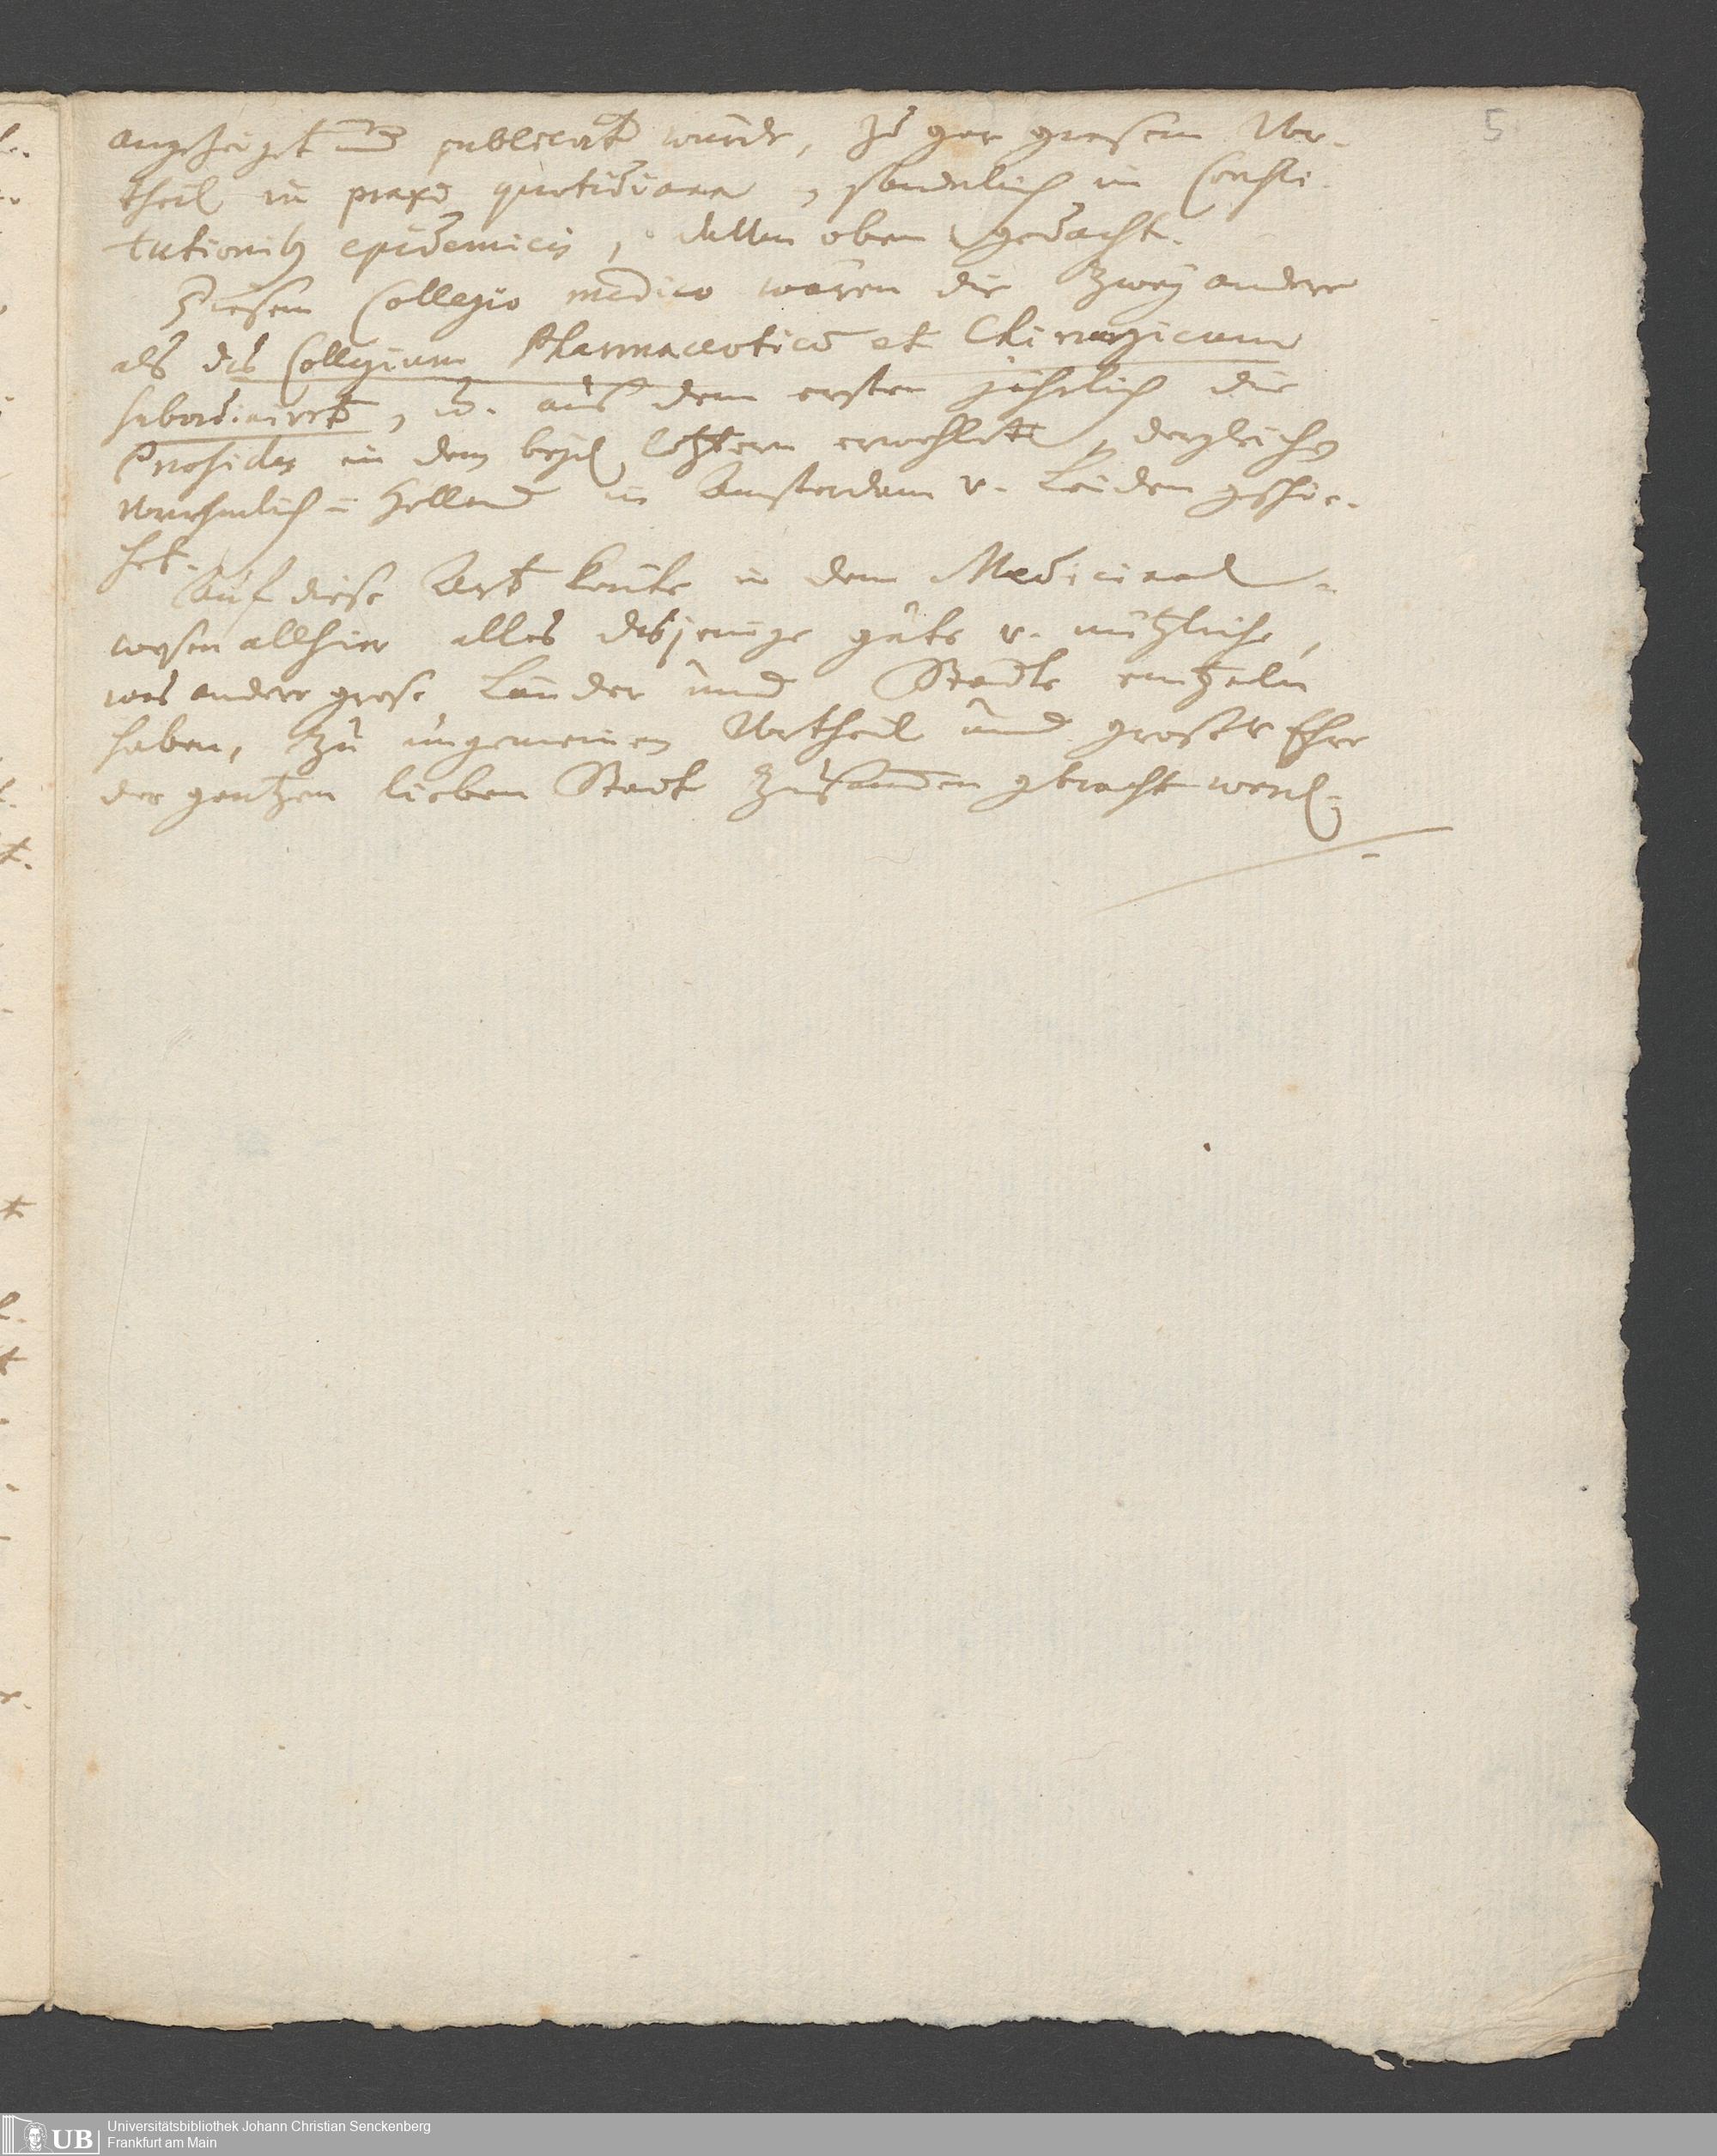 angezeiget und publicirt würde, zu gar grosem Vor-
theil in praxi quotidiana, sonderlich in Consti-
tutionib9 epidemicis, dessen oben gedacht.
Diesem Collegio medico wären die zwey andere
als das Collegium Pharmaceoticū et Chirurgicum
subordinirt, u. aus dem ersten jährlich die
Praesides in den beyd letztern erwehlet, dergleichen
in Holland in Amsterdam u. Leiden geschie-
het.
Auf diese Art könte in dem Medicinal-
wesen allhier alles dasjenige gute u. nützliche,
was andere grose Länder und Städte eintzeln
haben, zu ungemeinen Vortheil und groser Ehre
der gantzen lieben Stadt zusammen gebracht werd.
5
UB
Universitätsbibliothek Johann Christian Senckenberg
Frankfurt am Main